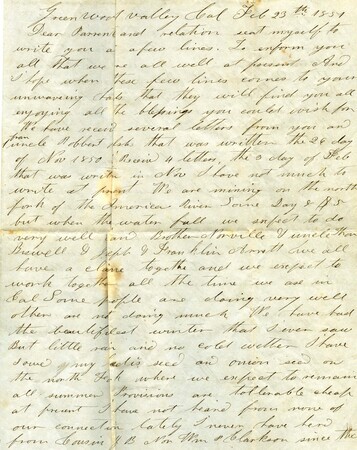 Green Wood Valley Cal Feb 23th 1851
Dear Parrent and relation seat myself to
write you a afew lines. To inform you
all that we are all well at present And
I hope when these few lines comes to your
hands that they will find you all
enjoying all the blessings you could wish for
We have receid several letters from you and
uncle Robert that was writen the 26 day
of Nov 1850 I Receivd 4 letters, the 3 day of Feb
that was writen in Nov I have not much to
write at present We are mining on the north
fork of the America River Some Day $
but when the water fall we expect to do
very well and Brother Norville & uncle
& & Franklin we all
have a clame togethe and we expect to
work togethe all the time we are in
Cal Some people are doing very well
others are not doing much We have had
the beautifulest winter that I ever saw
But little rain and no cold wether I have
sowd my seed an onion seed on
the north Fork where we expect to remain
all summer Provisions are tollerable cheap
at present I have not heard from none of
our connection lately I never have herd
from Cousin B Nor Wm Clarkson since the